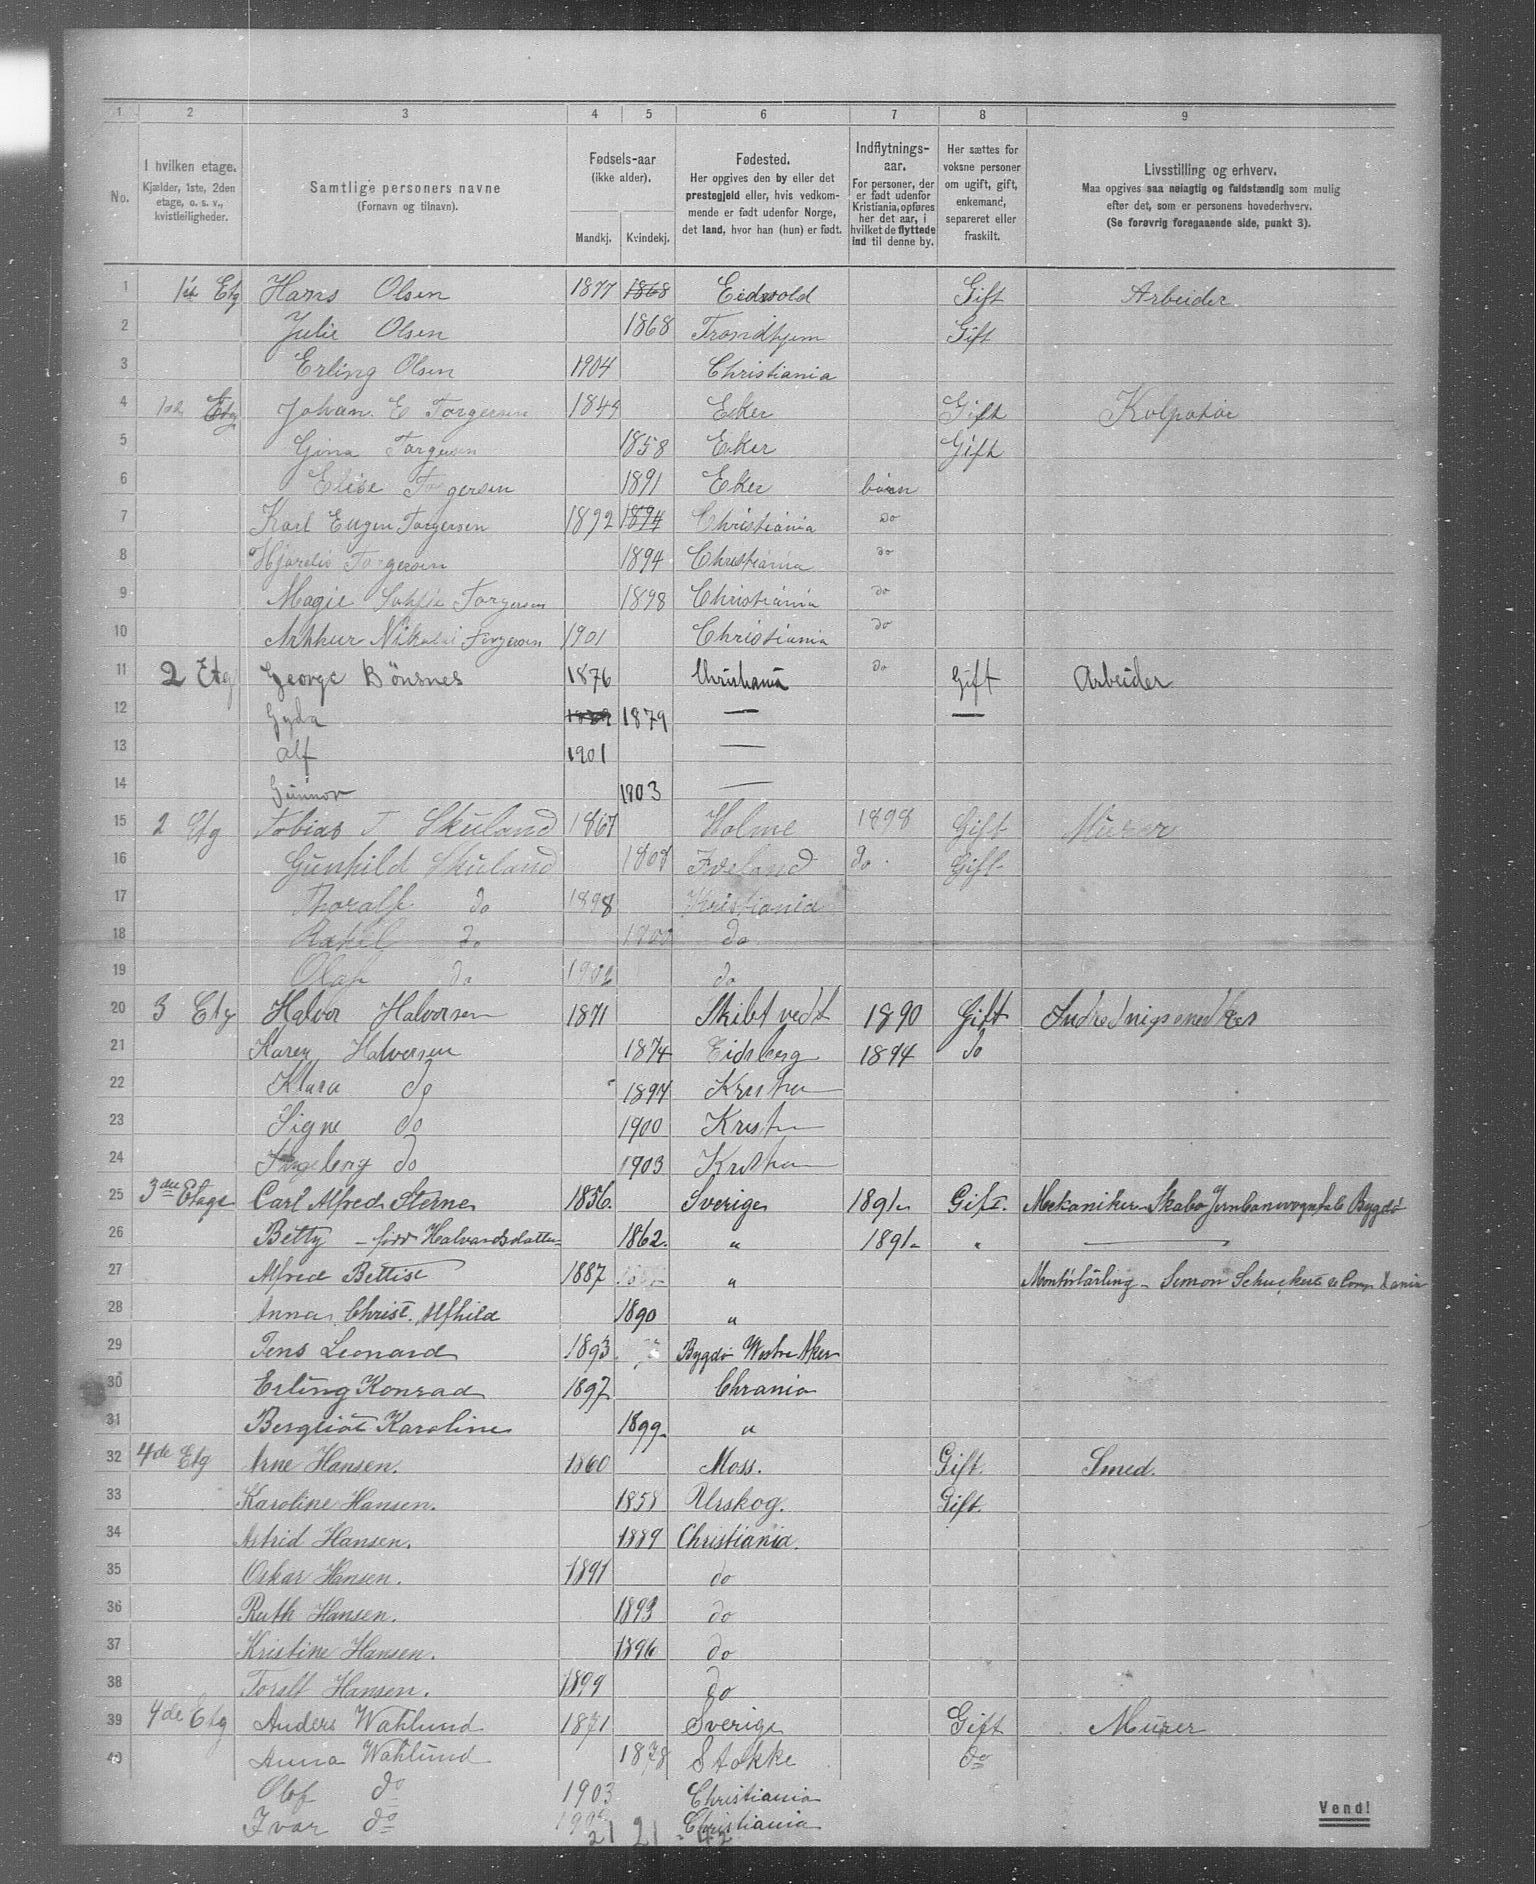 1 2 3 4 5 6 7 8 9
No.
I hvilken etage.
Kjælder, 1ste, 2den
etage, o. s. v.,
kvistleiligheder.
Samtlige personers navne
(Fornavn og tilnavn).
Fødsels-aar
(ikke alder).
Mandkj. Kvindekj.
Fødested.
Her opgives den by eller det
prestegjeld eller, hvis vedkom-
mende er født udenfor Norge,
det land, hvor han (hun) er født.
Indflytnings-
aar.
For personer, der
er født udenfor
Kristiania, opføres
her det aar, i
hvilket de flyttede
ind til denne by.
Her sættes for
voksne personer
om ugift, gift,
enkemand,
separeret eller
fraskilt.
Livsstilling og erhverv.
Maa opgives saa nøiagtig og fuldstændig som mulig
efter det, som er personens hovederhverv.
(Se forøvrig foregaaende side, punkt 3).
1 1st Etg Hans Olsen 1877 1868 Eidsvold Gift Arbeider
2 Julie Olsen 1868 Trondhjem Gift
3 Erling Olsen 1904 Christiania
4 Etg Johan E Torgersen 1844 Eker Gift Kolpotør
5 Gina Torgersen 1858 Eker Gift
6 Elise Torgersen 1891 Eker
7 Karl Eugen Torgersen 1892 1894 Christiania do
8 Torgersen 1894 Christiania do
9 Magie Sofie Torgersen 1898 Christiania do
10 Arthur Nikolai Torgersen 1901 Christiania do
11 2 Etg George Bönsnes 1876 Christiania do Gift Arbeider
12 Gyda 1879 — —
13 Alf 1901 —
14 Gunnor 1903 —
15 2 Etg Tobias T Skuland 1867 Holme 1898 Gift Murer
16 Gunhild Skuland Iveland do Gift
17 Thoralf do 1898 Kristiania
18 Rakel do 1900 do
19 Olaf do 1902 do
20 3 Etg Halvor Halvorsen 1871 Skibtvedt 1890 Gift Indrednigssnedker
21 Karen Halvorsen 1874 Eidsberg 1894 do
22 Klara do 1897 Kristia
23 Signe do 1900 Kristia
24 Ingeborg do 1903 Kristia
25 3die Etage Carl Alfred Sterner 1856. Sverige 1891 Gift. Mekaniker Skabo Jernbanevognfab. Bygdø
26 Betty – født Halvardsdatter 1862. " 1891 "
27 Alfred Bettist 1887 " Montørlærling – Simon Schuckert & Comp Xania
28 Anna Christ. Alfhild 1890 "
29 Jens Leonard 1893 Bygdø Westre Aker
30 Erling Konrad 1897 Chrania
31 Bergliot Karoline 1899 "
32 4de Etg Arne Hansen. 1860 Moss. Gift. Smed.
33 Karoline Hansen. 1858 Urskog. Gift.
34 Astrid Hansen. 1889 Christiania.
35 Oskar Hansen. 1891 do
36 Ruth Hansen. 1893 do
37 Kristine Hansen. 1896 do
38 Toralf Hansen. 1899 do
39 4de Etg Anders Wahlund 1871 Sverige Gift Murer
40 Anna Wahlund 1878 Stokke do
Olof do 1903 Christiania
Ivar do Christiania
21 21 - 42
Vend!